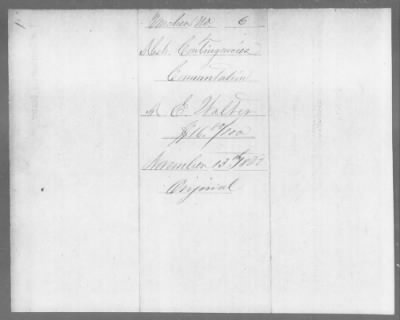 Voucher No. 6
Contingencies
Commutation
E. Walter
$16.00/100
November 13th
Original